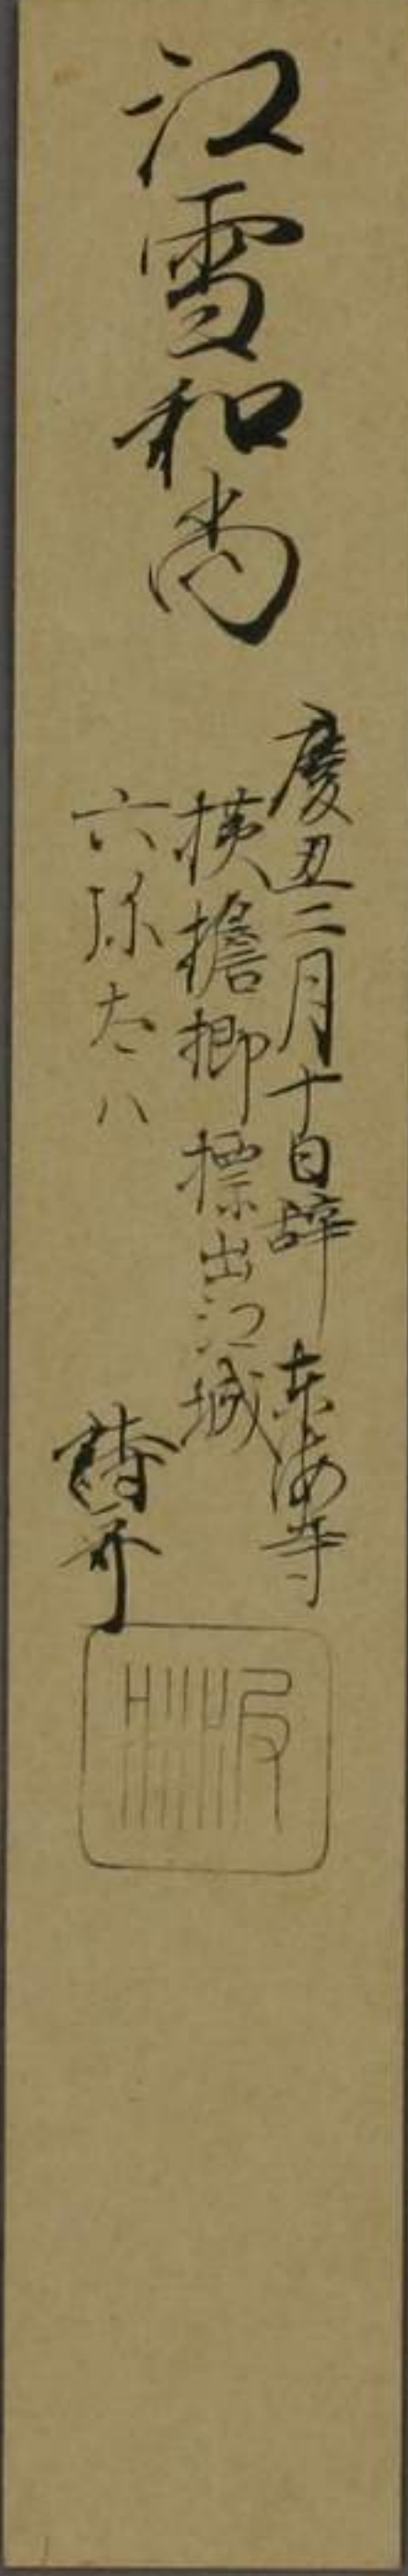 江雪和尚
慶丑二月十日辞 東海寺
横擔楖標出江城
六 太八